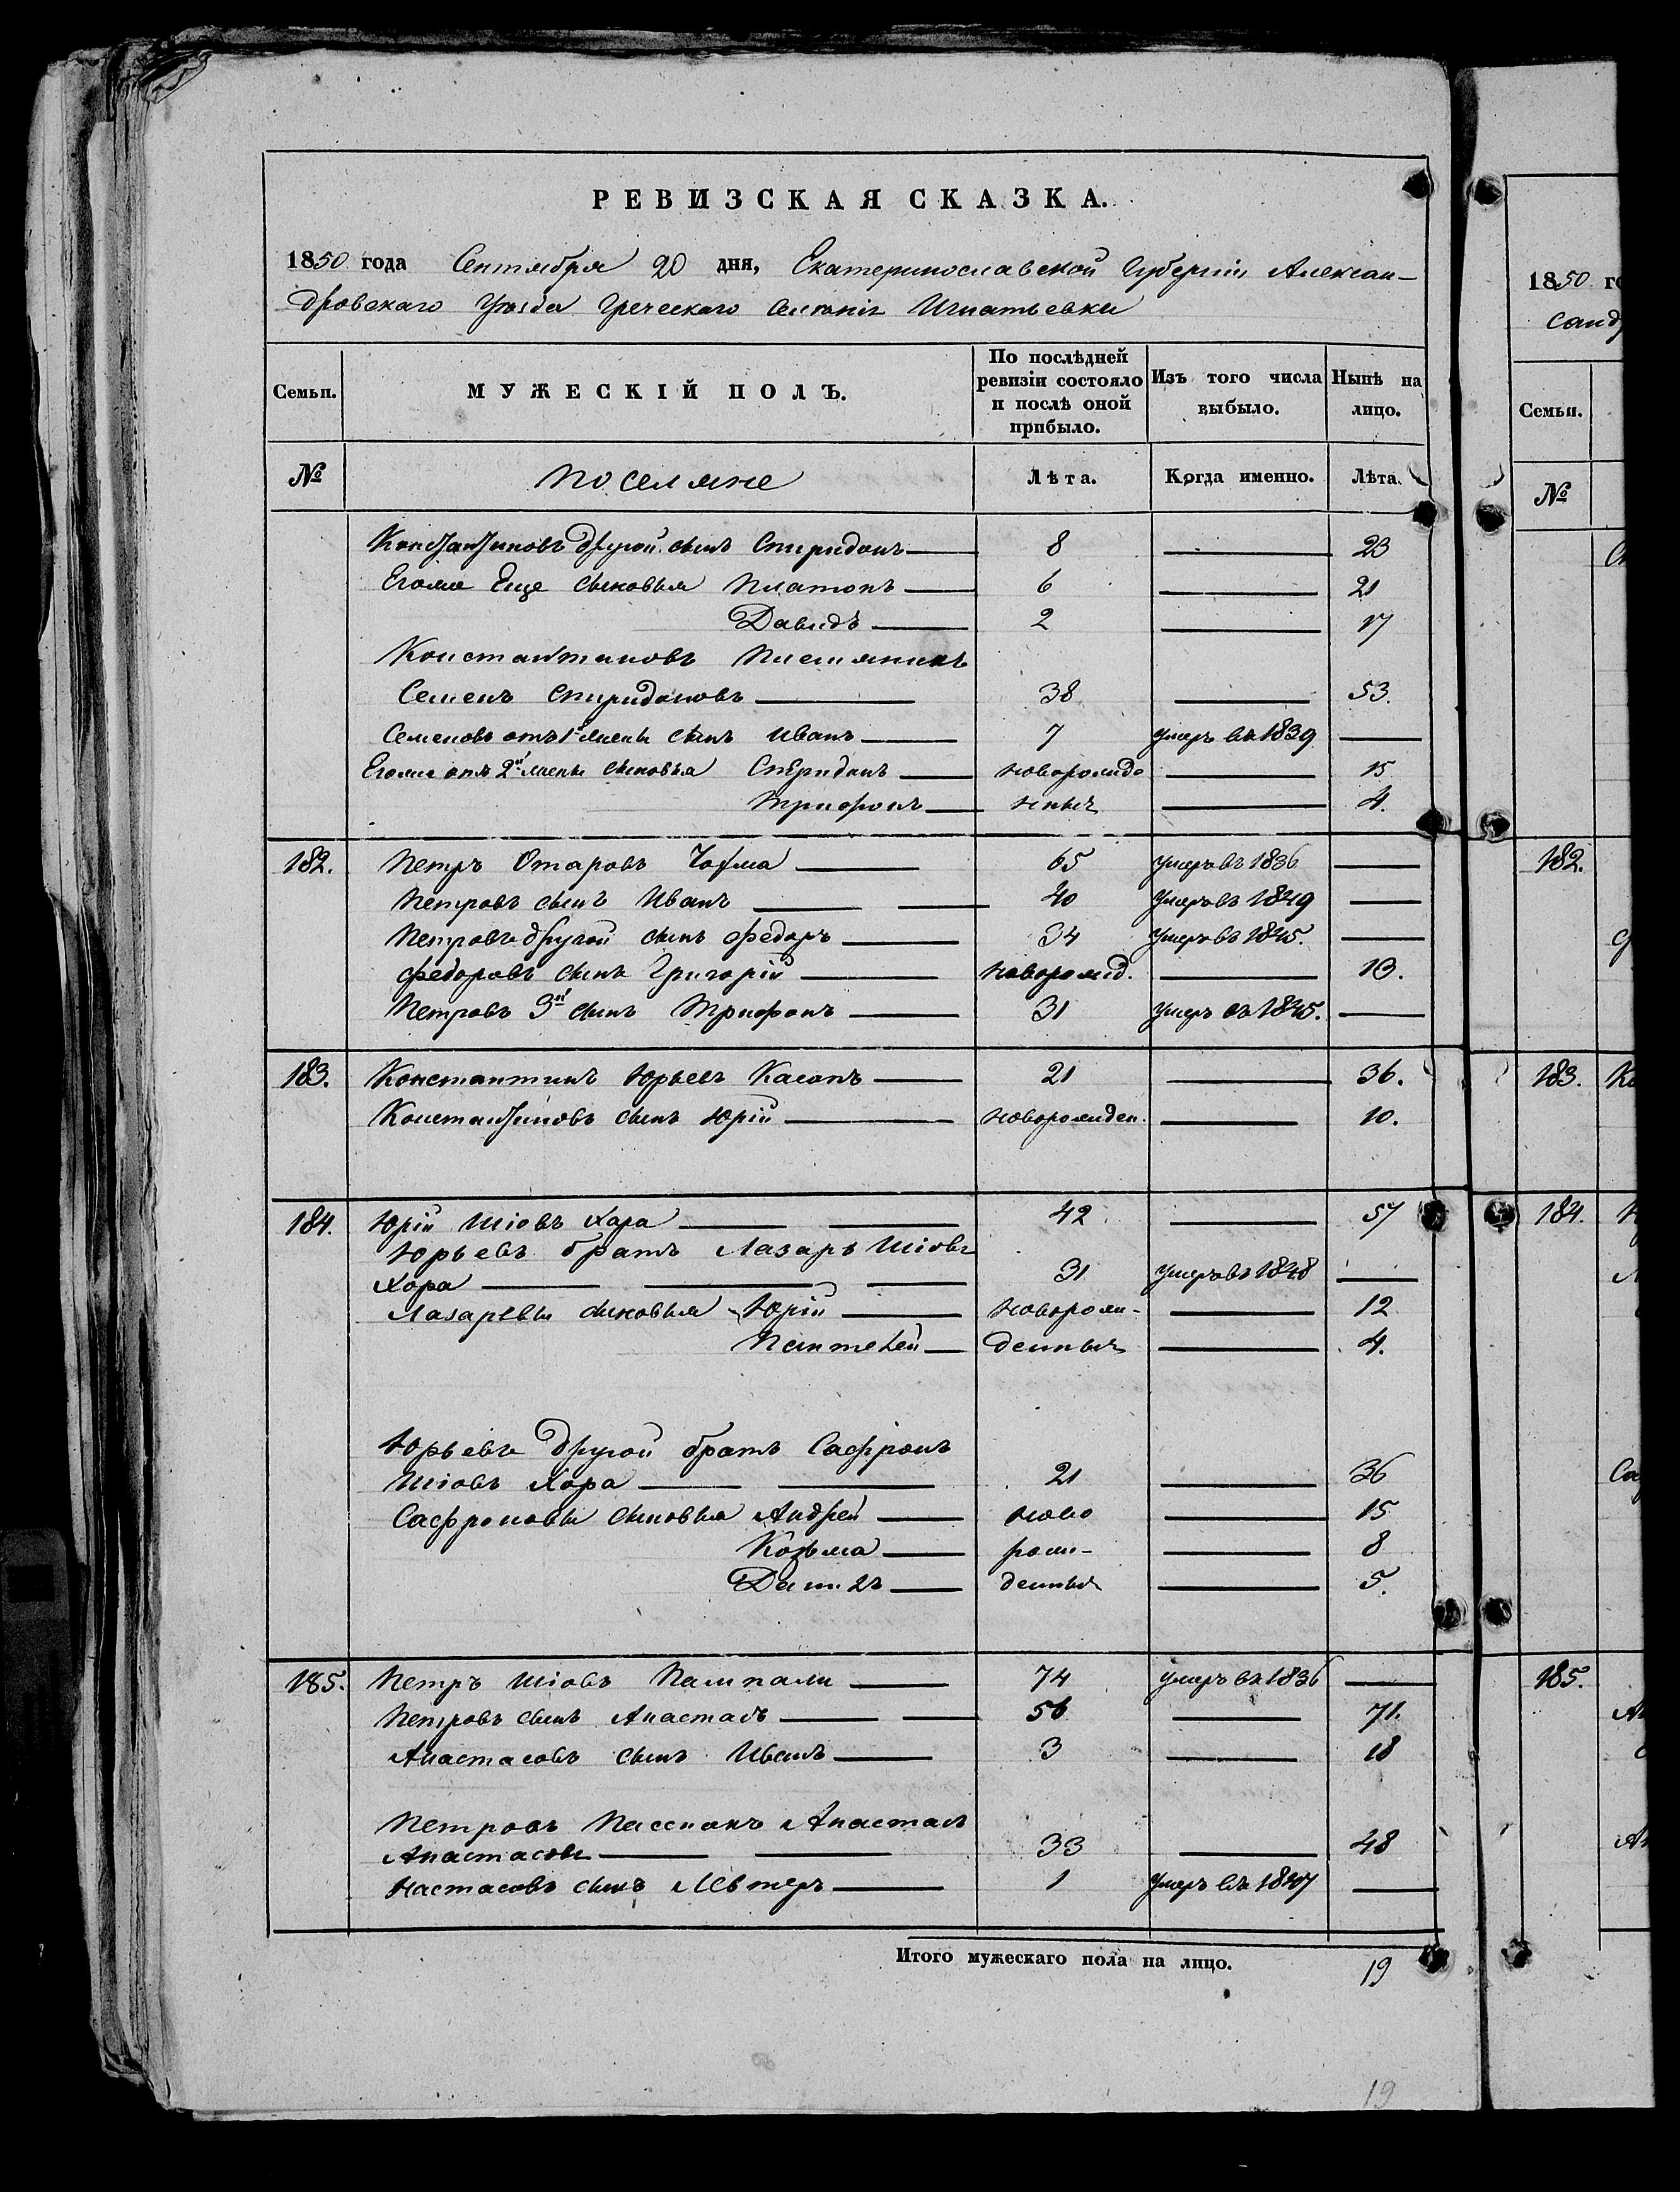 РЕВИЗСКАЯ СКАЗКА.
1850 года Сентября 20 дня, Екатеринославской Губерніи Алексан-
дровскаго Уѣзда Греческаго Селенія Игнатьевки
Семьи. МУЖЕСКІЙ ПОЛЪ. По послѣдней ревизіи состояло и послѣ оной прибыло. Изъ того числа выбыло. Нынѣ на лицо.
№ Поселяне Лѣта. Когда именно. Лѣта.
Константиновъ другой сынъ Спиридонъ 8 23
Егоже Еще сыновья Платонъ 6 21
Давидъ 2 17
Константиновъ Племянникъ
Семенъ Спиридоновъ 38 53.
Семеновъ отъ 1й жены сынъ Иванъ 7 умеръ въ 1839
Егоже отъ 2й жены сыновья Спиридонъ новорожде 15
Трифонъ нныя 4.
182. Петръ Отаровъ 65 умеръ въ 1836
Петровъ сынъ Иванъ 40 умеръ въ 1849
Петровъ другой сынъ Федоръ 34 умеръ въ 1845.
Федоровъ сынъ Григорій новорожд. 13.
Петровъ 3й сынъ Трифонъ 31 умеръ въ 1845.
183. Константинъ Юрьевъ Касапъ 21 36.
Константиновъ сынъ Юрій новорожден. 10.
184. Юрій Шіовъ Хара 42 57
Юрьевъ братъ Лазарь Шіовъ
Хора 31 умеръ въ 1848
Лазаревы сыновья Юрій новорож- 12
Пантелей денныя 4.
Юрьевъ другой братъ Сафронъ
Шіовъ Хора 21 36
Сафроновы сыновья Андрей ново 15
Козьма рож- 8
Данилъ денныя 5.
185. Петръ Шіовъ 74 умеръ въ 1836
Петровъ сынъ Анастасъ 56 71.
Анастасовъ сынъ Иванъ 3 18
Петровъ Пасснокъ Анастасъ
Анастасовъ 33 48
Настасовъ сынъ Левтеръ 1 умеръ въ 1847
Итого мужескаго пола на лицо. 19
19
1850 го
санд
Семьи.
№
182.
183. Ко
184.
185.